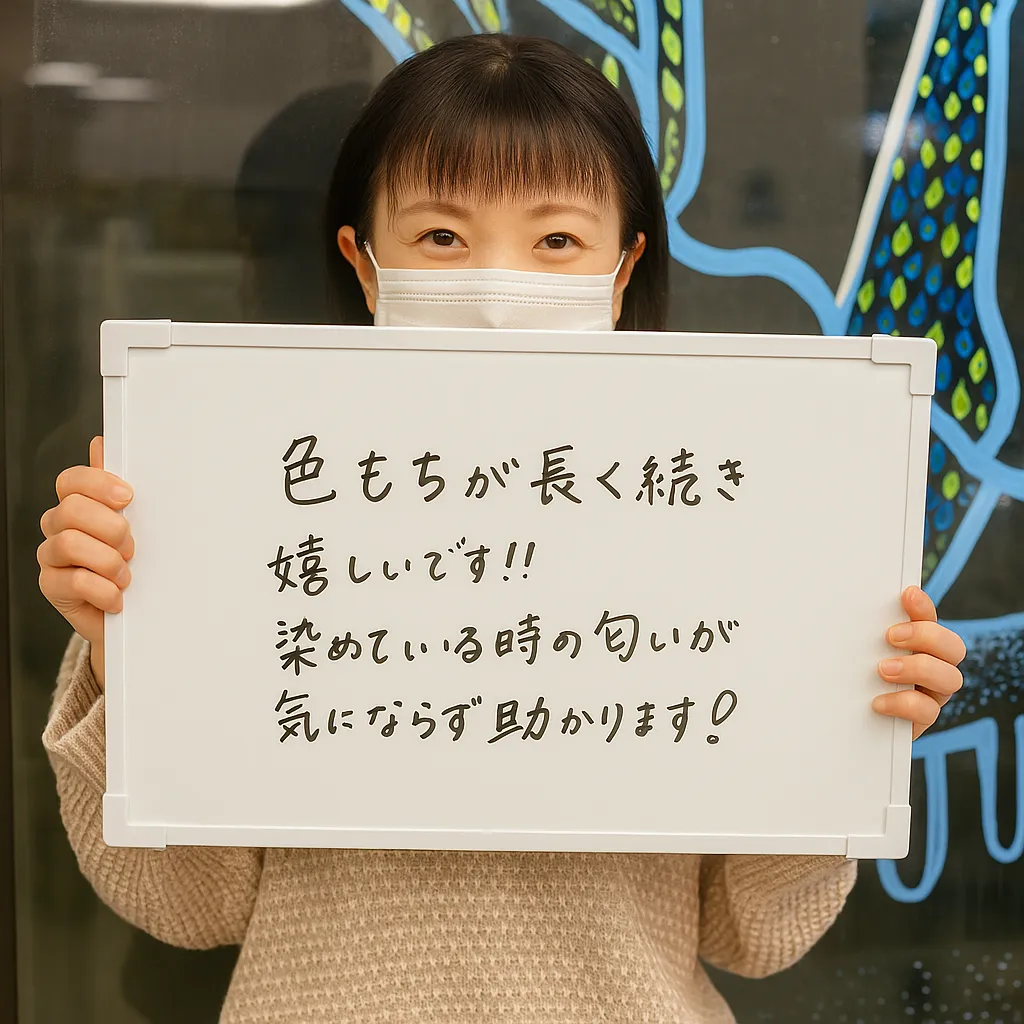 色もちが長く続き
嬉しいです!!
染めている時の匂いが
気にならず助かります!